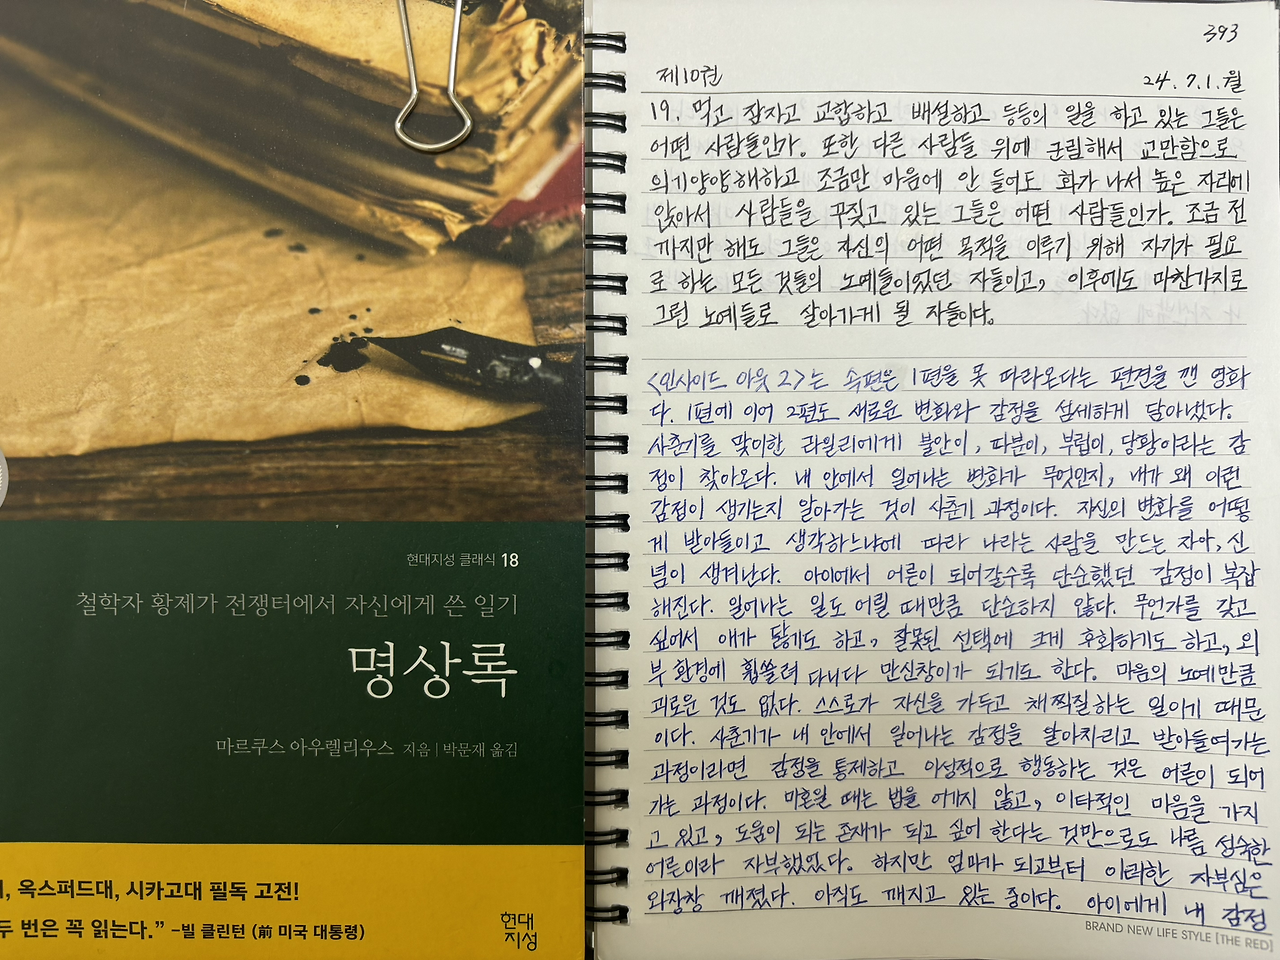 현대지성 클래식 18
철학자 황제가 전쟁터에서 자신에게 쓴 일기
명상록
마르쿠스 아우렐리우스 지음 | 박문재 옮김
, 옥스퍼드대, 시카고대 필독 고전!
두 번은 꼭 읽는다.” –빌 클린턴 (前 미국 대통령)
현대
지성
393
제10권
24. 7. 1. 월
19. 먹고 잠자고 교합하고 배설하고 등등의 일을 하고 있는 그들은
어떤 사람들인가. 또한 다른 사람들 위에 군림해서 교만함으로
의기양양해하고 조금만 마음에 안 들어도 화가 나서 높은 자리에
앉아서 사람들을 꾸짖고 있는 그들은 어떤 사람들인가. 조금 전
까지만 해도 그들은 자신의 어떤 목적을 이루기 위해 자기가 필요
로 하는 모든 것들의 노예들이었던 자들이고, 이후에도 마찬가지로
그런 노예들로 살아가게 될 자들이다.
<인사이드 아웃 2>는 속편은 1편을 못 따라온다는 편견을 깬 영화
다. 1편에 이어 2편도 새로운 변화와 감정을 섬세하게 담아냈다.
사춘기를 맞이한 라일리에게 불안이, 따분이, 부럽이, 당황이라는 감
정이 찾아온다. 내 안에서 일어나는 변화가 무엇인지, 내가 왜 이런
감정이 생기는지 알아가는 것이 사춘기 과정이다. 자신의 변화를 어떻
게 받아들이고 생각하느냐에 따라 나라는 사람을 만드는 자아, 신
념이 생겨난다. 아이에서 어른이 되어갈수록 단순했던 감정이 복잡
해진다. 일어나는 일도 어릴 때만큼 단순하지 않다. 무언가를 갖고
싶어서 애가 닳기도 하고, 잘못된 선택에 크게 후회하기도 하고, 외
부 환경에 휩쓸려 다니다 만신창이가 되기도 한다. 마음의 노예만큼
괴로운 것도 없다. 스스로가 자신을 가두고 채찍질하는 일이기 때문
이다. 사춘기가 내 안에서 일어나는 감정을 알아차리고 받아들여가는
과정이라면 감정을 통제하고 이성적으로 행동하는 것은 어른이 되어
가는 과정이다. 미혼일 때는 법을 어기지 않고, 이타적인 마음을 가지
고 있고, 도움이 되는 존재가 되고 싶어 한다는 것만으로도 나름 성숙한
어른이라 자부했었다. 하지만 엄마가 되고부터 이러한 자부심은
와장창 깨졌다. 아직도 깨지고 있는 중이다. 아이에게 내 감정
BRAND NEW LIFE STYLE [THE RED]